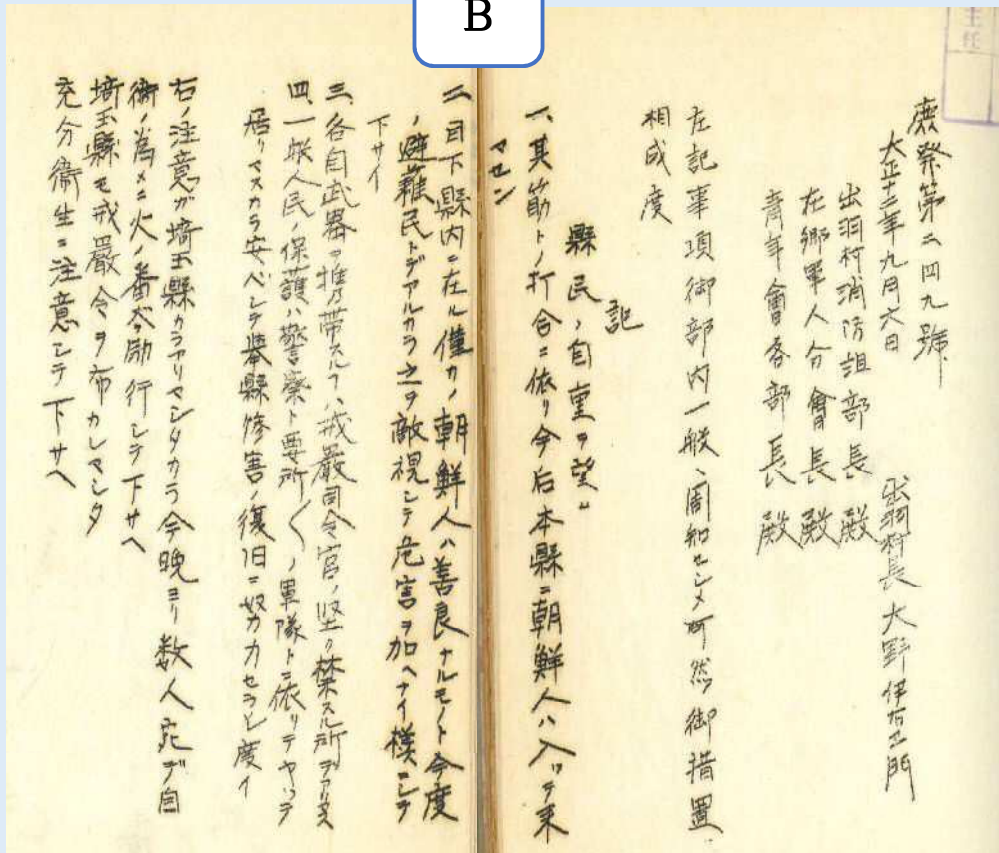 B
主任
庶発第二四九號
大正十二年九月六日
出羽村長 大野伊右エ門
出羽村消防組部長 殿
在郷軍人分會長 殿
青年會各部長 殿
左記事項御部内一般ヘ周知セシメ可然御措置
相成度
記
縣民ノ自重ヲ望ム
一、其筋トノ打合ニ依リ今后本縣ニ朝鮮人ハ入ツテ来
マセン
二、目下縣内ニ在ル僅カノ朝鮮人ハ善良ナルモノト今度
ノ避難民トデアルカラ之ヲ敵視シテ危害ヲ加ヘナイ様ニシテ
下サイ
三、各自武器ヲ携帯スルハ戒嚴司令官ノ堅ク禁スル所デアリマス
四、一般人民ノ保護ハ警察ト要所〱ノ軍隊トニ依リテヤツテ
居リマスカラ安ベシテ挙縣惨害ノ復旧ニ努力セラレ度イ
右ノ注意ガ埼玉縣カラアリマシタカラ今晩ヨリ数人宛デ自
衛ノ為メニ火ノ番ヲ励行シテ下サヘ
埼玉縣モ戒嚴令ヲ布カレマシタ
充分衛生ニ注意シテ下サヘ